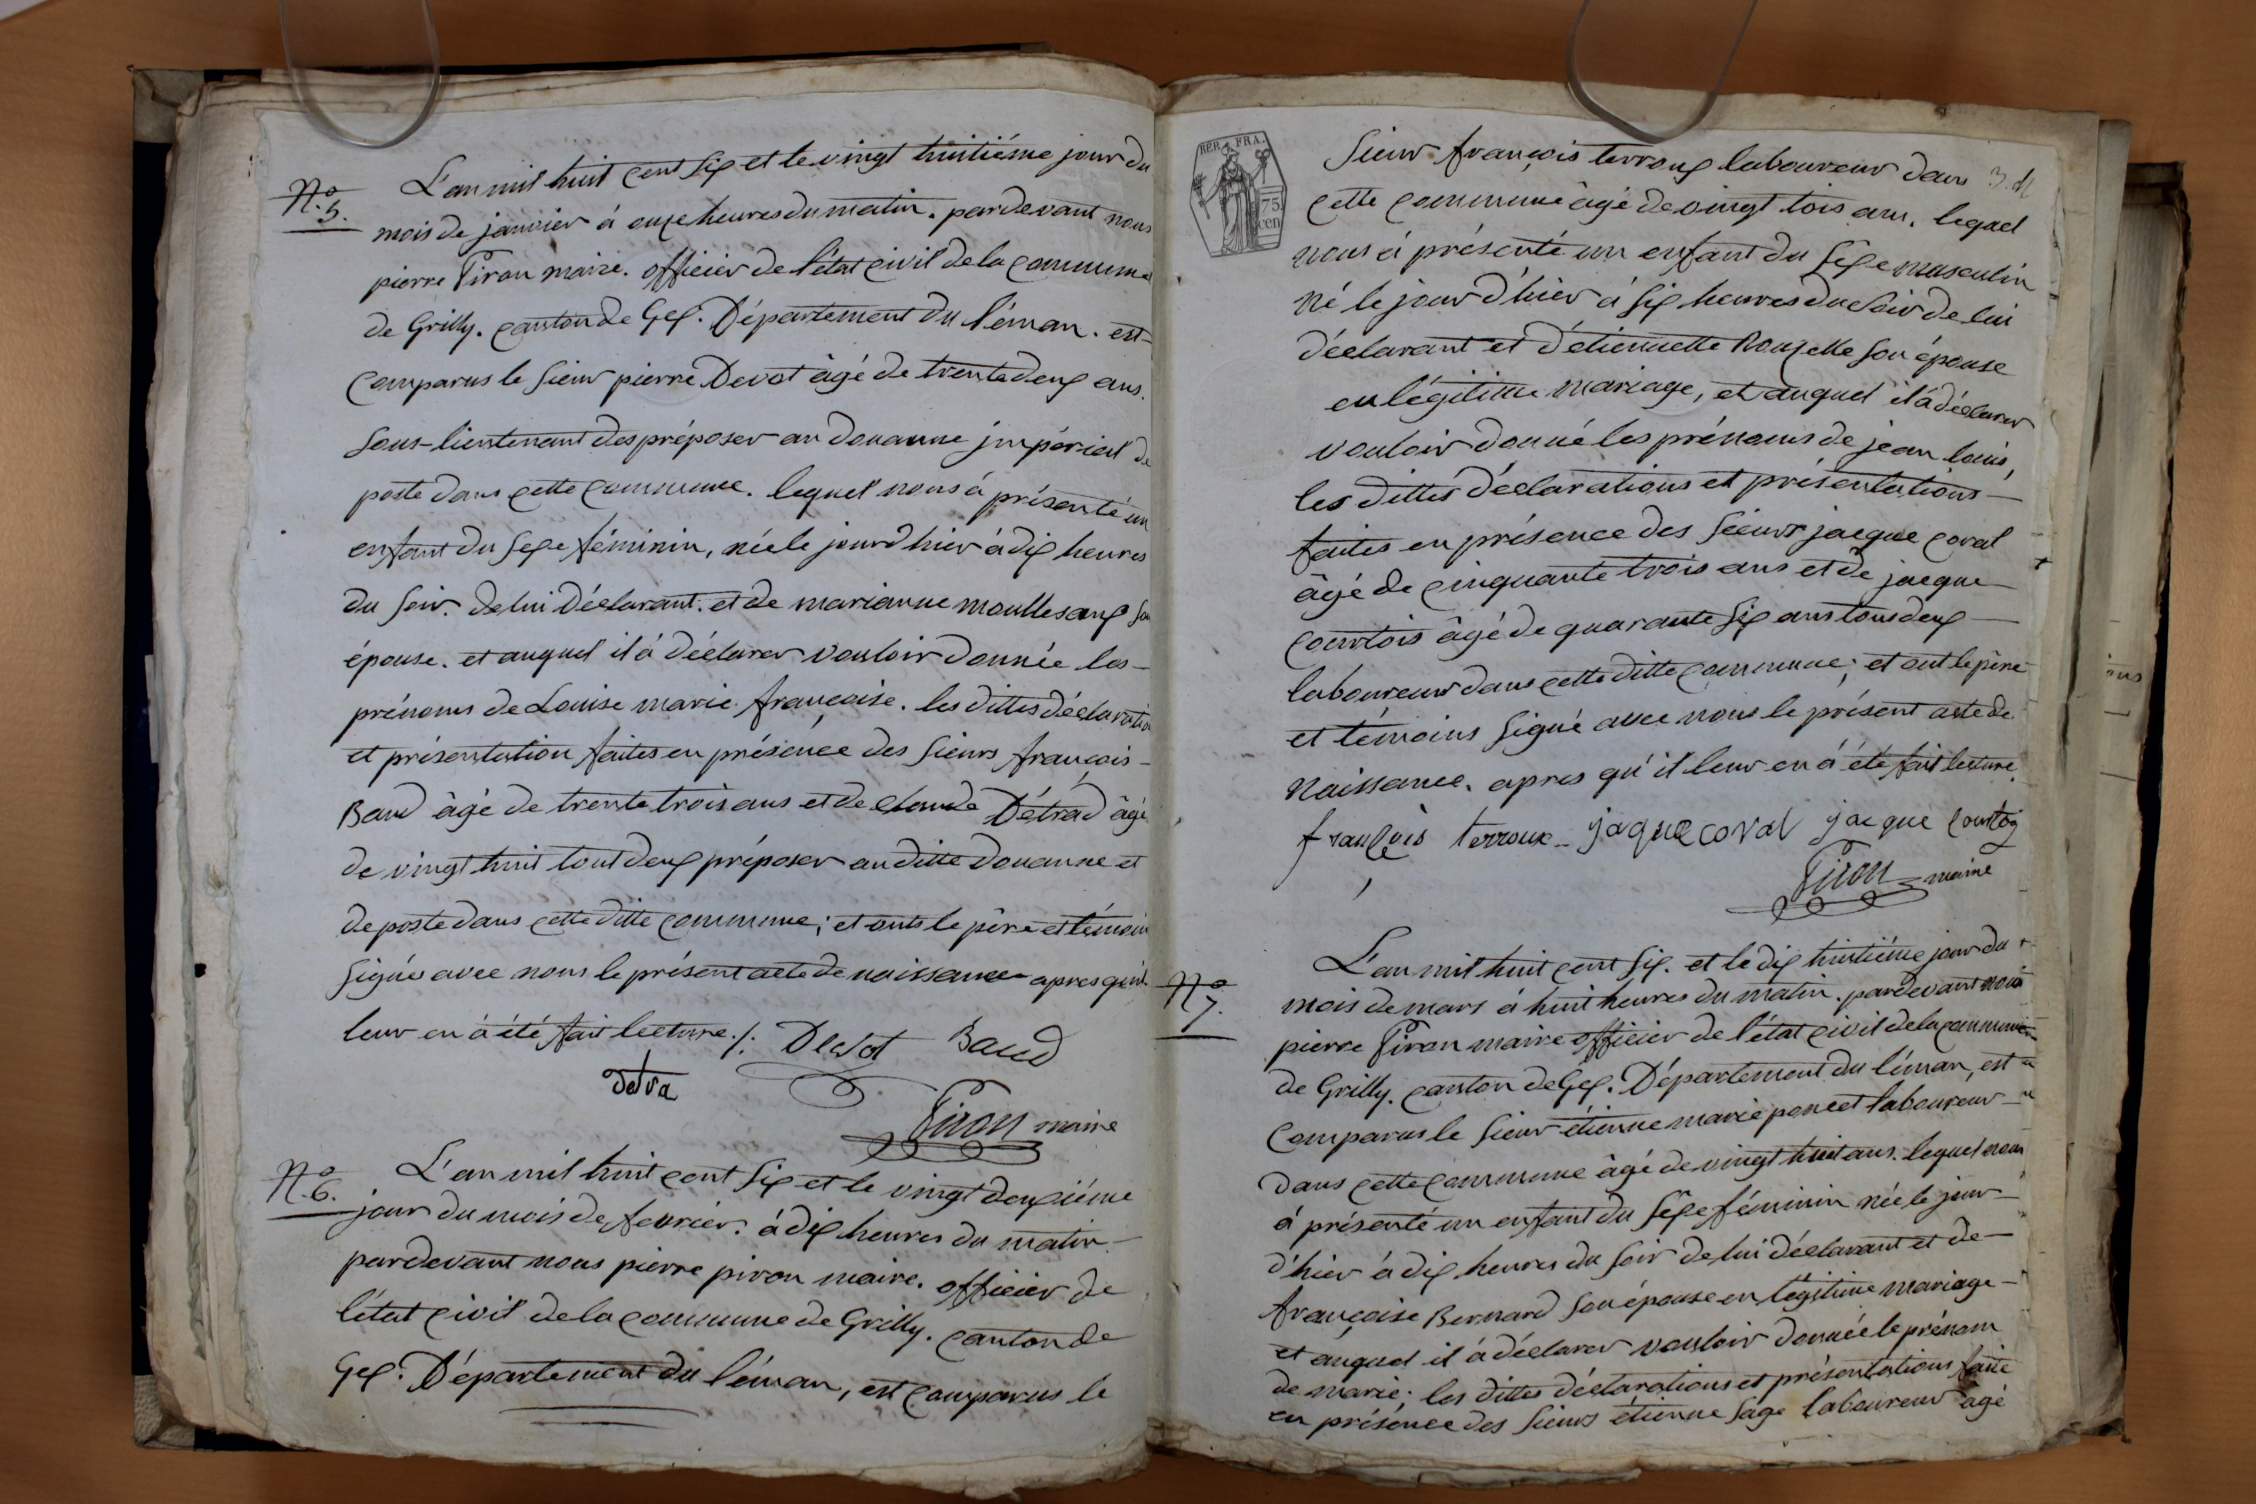 N.o 5.
L'an mil huit cent six et le vingt huitiéme jour du
mois de janvier à onze heures du matin. pardevant nous
pierre Piron maire. officier de l'état civil de la commune
de Grilly. canton de Gex. Département du léman. est
comparus le sieur pierre Devot âgé de trente deux ans.
sous-lieutenant des préposer au douanne jmpérial de
poste dans cette commune. lequel nous à présenté un
enfant du sexe féminin, née le jour d'hier à dix heures
du soir. de lui déclarant. et de marianne moullesaux son
épouse. et auquel il à déclarer vouloir donnée les
prénoms de Louise marie françoise. les dittes déclaration
et présentation faites en présence des sieurs françois
Baud âgé de trente trois ans et de claude Détrad âgé
de vingt huit tout deux préposer au ditte douanne et
de poste dans cette ditte commune; et onts le père et témoin
signés avec nous le présent acte de naissance apres quil
leur en à été fait lecture ./. Devot Baud
detra
Piron maire
N.o 6.
L'an mil huit cent six et le vingt deuxiéme
jour du mois de fevrier. à dix heures du matin
pardevant nous pierre piron maire. officier de
l'état civil de la commune de Grilly. canton de
Gex. Département du léman, est comparus le
REP. FRA.
75
cen
sieur françois terroux laboureur dans
cette commune âgé de vingt tois ans. lequel
nous à présenté un enfant du sexe masculin
né le jour d'hier à six heures du soir de lui
déclarant et d'étiennette Rouzelle son épouse
en légitime mariage, et auquel il à déclarer
vouloir donné les prénoms de jean louis,
les dittes déclarations et présentations
faites en présence des sieurs jacque coval
âgé de cinquante trois ans et de jacque
courtois âgé de quarante six ans tous deux
laboureur dans cette ditte commune; et ont le père
et témoins signé avec nous le présent acte de
naissance. apres qu'il leur en à été fait lecture.
françois terroux jaque coval jacque
Piron maire
N.o 7.
L'an mil huit cent six. et le dix huitiéme jour du
mois de mars à huit heures du matin. pardevant nous
pierre Piron maire officier de l'état civil de la commune
de Grilly. canton de Gex. Département du léman, est
comparus le sieur étienne marie poncet laboureur
dans cette commune âgé de vingt huit ans. lequel nous
à présenté un enfant du sexe féminin née le jour
d'hier à dix heures du soir de lui déclarant et de
françoise Bernard son épouse en légitime mariage
et auquel il à déclarer vouloir donnée le prénom
de marie; les dittes déclarations et présentations faite
en présence des sieurs étienne sage laboureur âgé